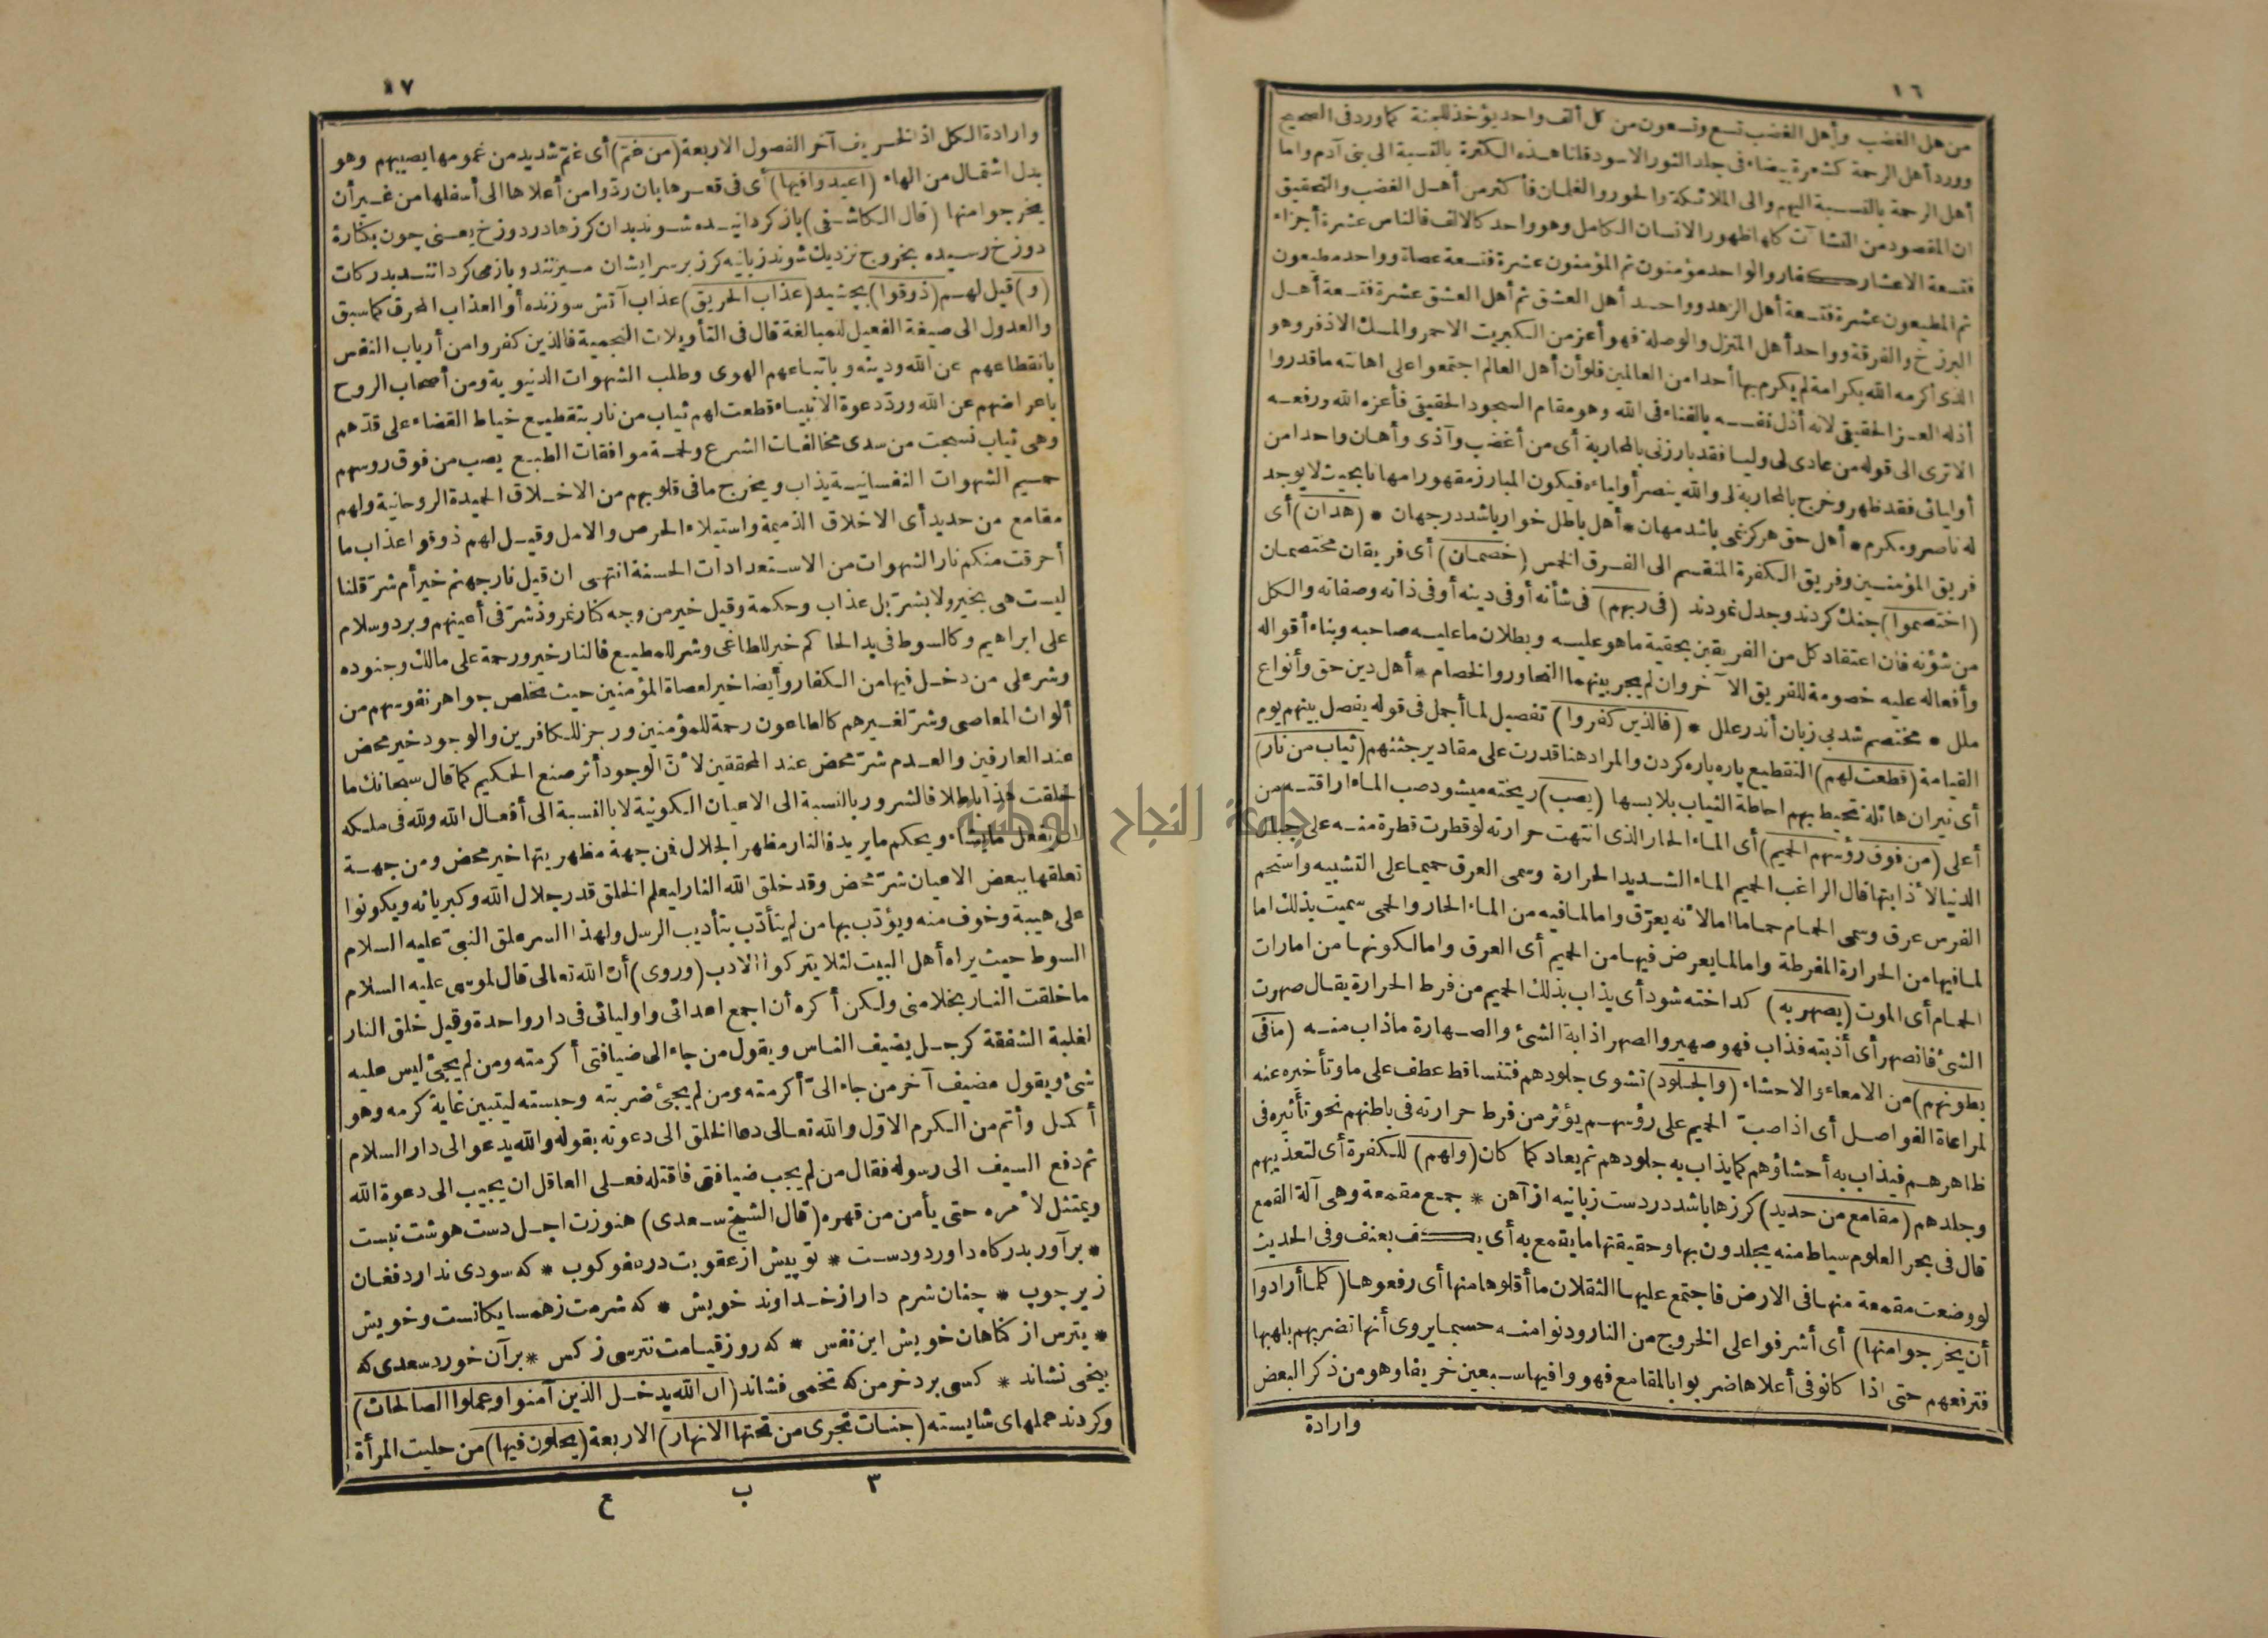 ١٦
من هل الغضب وأهل الغضب تسع وتسعون من كل ألف واحد يؤخذ للجنة كما ورد فى الصحيح
وورد أهل الرحمة كشعرة بيضاء فى جلد الثور الاسود قلنا هذه الكثرة بالنسبة الى بنى آدم واما
أهل الرحمة بالنسبة اليهم والى الملائكة والحور والغلمان فأكثر من أهل الغضب والتحقيق
ان المقصود من النشاآت كلها ظهور الانسان الكامل وهو واحد كالالف فالناس عشرة أجزاء
فتسعة الاعشار كفار والواحد مؤمنون ثم المؤمنون عشرة فتسعة عصاة وواحد مطيعون
ثم المطيعون عشرة فتسعة أهل الزهد وواحد أهل العشق ثم أهل العشق عشرة فتسعة أهل
البرزخ والفرقة وواحد أهل المنزل والوصلة فهو أعز من الكبريت الاحمر والمسك الاذفر وهو
الذى أكرمه الله بكرامة لم يكرم بها أحدا من العالمين فلو أن أهل العالم اجتمعوا على اهانته ما قدروا
أذله العز الحقيقى لانه أذل نفسه بالفناء فى الله وهو مقام السجود الحقيقى فأعزه الله ورفعه
الاترى الى قوله من عادى لى وليا فقد بارزنى بالمحاربة أى من أغضب وآذى وأهان واحدا من
أوليائى فقد ظهر وخرج بالمحاربة لى والله ينصر أولياءه فيكون المبارز مقهورا مهانا بحيث لا يوجد
له ناصر ومكرم * أهل حق هركز نمى باشد مهان * أهل باطل خوار باشد در جهان * (هذان) أى
فريق المؤمنين وفريق الكفرة المنقسم الى الفرق الخمس (خصمان) أى فريقان مختصمان
(اختصموا) جنك كردند وجدل نمودند (فى ربهم) فى شأنه أو فى دينه أو فى ذاته وصفاته والكل
من شؤنه فان اعتقاد كل من الفريقين بحقية ما هو عليه وبطلان ما عليه صاحبه وبناء أقواله
وأفعاله عليه خصومة للفريق الآخر وان لم يجر بينهما التحاور والخصام * أهل دين حق وأنواع
ملل * مختصم شد بى زبان أندر علل * (فالذين كفروا) تفصيل لما أجمل فى قوله يفصل بينهم يوم
القيامة (قطعت لهم) التقطيع پاره پاره كردن والمراد هنا قدرت على مقادير جثثهم (ثياب من نار)
أى نيران هائلة تحيط بهم احاطة الثياب بلابسها (يصب) ريخته ميشود صب الماء اراقته من
أعلى (من فوق رؤسهم الحميم) أى الماء الحار الذى انتهت حرارته لو قطرت قطرة منه على جبال
الدنيا لاذابتها قال الراغب الحميم الماء الشديد الحرارة وسمى العرق حميما على التشبيه واستحم
الفرس عرق وسمى الحمام حماما اما لانه يعرّق واما لما فيه من الماء الحار والحمى سميت بذلك اما
لما فيها من الحرارة المفرطة واما لما يعرض فيها من الحميم أى العرق واما لكونها من امارات
الحمام أى الموت (يصهر به) كداخته شود أى يذاب بذلك الحميم من فرط الحرارة يقال صهرت
الشئ فانصهر أى أذبته فذاب فهو صهير والصهر اذابة الشئ والصهارة ما ذاب منه (ما فى
بطونهم) من الامعاء والاحشاء (والجلود) تشوى جلودهم فتتساقط عطف على ما وتأخيره عنه
لمراعاة الفواصل أى اذا صب الحميم على رؤسهم يؤثر من فرط حرارته فى باطنهم نحو تأثيره فى
ظاهرهم فيذاب به أحشاؤهم كما يذاب به جلودهم ثم يعاد كما كان (ولهم) للكفرة أى لتعذيبهم
وجلدهم (مقامع من حديد) كرزها باشد در دست زبانيه از آهن * جمع مقمعة وهى آلة القمع
قال فى بحر العلوم سياط منه يجلدون بها وحقيقتها ما يقمع به أى يكف بعنف وفى الحديث
لو وضعت مقمعة منها فى الارض فاجتمع عليها الثقلان ما أقلوها منها أى رفعوها (كلما أرادوا
أن يخرجوا منها) أى أشرفوا على الخروج من النار ودنوا منه حسبما يروى أنها تضربهم بلهبها
فترفعهم حتى اذا كانوا فى أعلاها ضربوا بالمقامع فهووا فيها سبعين خريفا وهو من ذكر البعض
وارادة
١٧
وارادة الكل اذ الخريف آخر الفصول الاربعة (من غمّ) أى غمّ شديد من غمومها يصيبهم وهو
بدل اشتمال من الهاء (اعيدوا فيها) أى فى قعرها بان ردّوا من أعلاها الى أسفلها من غير أن
يخرجوا منها (قال الكاشفى) باز كردانيده شوند بدان كرزها در دوزخ يعنى چون بكنارة
دوزخ رسيده بخروج نزديك شوند زبانيه كرز بر سر ايشان ميزنند وباز مى كردانند بدركات
(و) قيل لهم (ذوقوا) بچشيد (عذاب الحريق) عذاب آتش سوزنده أو العذاب المحرق كما سبق
والعدول الى صيغة الفعيل للمبالغة قال فى التأويلات النجمية فالذين كفروا من أرباب النفس
بانقطاعهم عن الله ودينه وباتباعهم الهوى وطلب الشهوات الدنيوية ومن أصحاب الروح
باعراضهم عن الله وردّ دعوة الانبياء قطعت لهم ثياب من نار بتقطيع خياط القضاء على قدّهم
وهى ثياب نسجت من سدى مخالفات الشرع ولحمة موافقات الطبع يصب من فوق روسهم
حميم الشهوات النفسانية يذاب ويخرج ما فى قلوبهم من الاخلاق الحميدة الروحانية ولهم
مقامع من حديد أى الاخلاق الذميمة واستيلاء الحرص والامل وقيل لهم ذوقوا عذاب ما
أحرقت منكم نار الشهوات من الاستعدادات الحسنة انتهى ان قيل نار جهنم خير أم شرّ قلنا
ليست هى بخير ولا بشرّ بل عذاب وحكمة وقيل خير من وجه كنار نمروذ شرّ فى أعينهم وبرد وسلام
على ابراهيم وكالسوط فى يد الحاكم خير للطاغى وشر للمطيع فالنار خير ورحمة على مالك وجنوده
وشر على من دخل فيها من الكفار وأيضا خير لعصاة المؤمنين حيث تخلص جواهر نفوسهم من
ألواث المعاصى وشرّ لغيرهم كالطاعون رحمة للمؤمنين ورجز للكافرين والوجود خير محض
عند العارفين والعدم شرّ محض عند المحققين لأنّ الوجود أثر صنع الحكيم كما قال سبحانك ما
خلقت هذا باطلا فالشرور بالنسبة الى الاعيان الكونية لا بالنسبة الى أفعال الله ولله فى ملكه
ان يفعل ما يشاء ويحكم ما يريد فالنار مظهر الجلال فمن جهة مظهريتها خير محض ومن جهة
تعلقها ببعض الاعيان شرّ محض وقد خلق الله النار ليعلم الخلق قدر جلال الله وكبريائه ويكونوا
على هيبة وخوف منه ويؤدّب بها من لم يتأدّب بتأديب الرسل ولهذا السر علق النبىّ عليه السلام
السوط حيث يراه أهل البيت لئلا يتركوا الادب (وروى) أن الله تعالى قال لموسى عليه السلام
ما خلقت النار بخلا منى ولكن أكره أن اجمع اعدائى واوليائى فى دار واحدة وقيل خلق النار
لغلبة الشفقة كرجل يضيف الناس ويقول من جاء الى ضيافتى أكرمته ومن لم يجئ ليس عليه
شئ ويقول مضيف آخر من جاء الىّ أكرمته ومن لم يجئ ضربته وحبسته ليتبين غاية كرمه وهو
أكمل وأتم من الكرم الاوّل والله تعالى دعا الخلق الى دعوته بقوله والله يدعو الى دار السلام
ثم دفع السيف الى رسوله فقال من لم يجب ضيافتى فاقتله فعلى العاقل ان يجيب الى دعوة الله
ويمتثل لأمره حتى يأمن من قهره (قال الشيخ سعدى) هنوزت اجل دست هوشت نبست
* برآور بدركاه داور دودست * تو پيش از عقوبت در عفو كوب * كه سودى ندارد فغان
زير چوب * چنان شرم دار از خداوند خويش * كه شرمت ز همسايكانست وخويش
* بترس از كناهان خويش اين نفس * كه روز قيامت نترسى ز كس * برآن خورد سعدى كه
بيخى نشاند * كسى برد خرمن كه تخمى فشاند (ان الله يدخل الذين آمنوا وعملوا الصالحات)
وكردند عملهاى شايسته (جنات تجرى من تحتها الانهار) الاربعة (يحلون فيها) من حليت المرأة
٣ ب ع
جامعة النجاح الوطنية